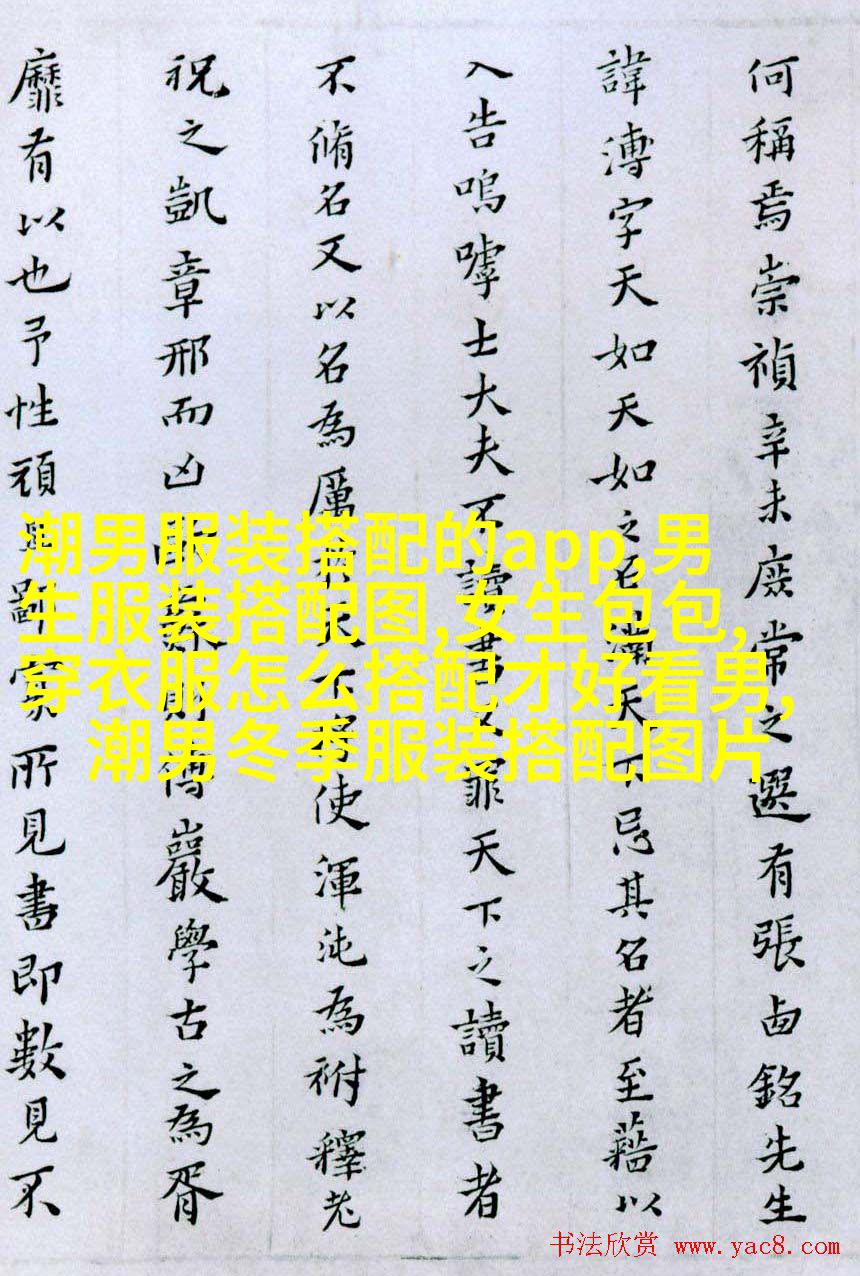 何稱焉崇禎辛未庶常之選有張卣銘先生
諱溥字天如天如之名滿天下忌其名者至藉以
入告嗚嘑士大夫不讀書又罪天下之讀書者
不脩名又以名為厲於天下使渾沌為祔釋老
祝之凱章邢而凶則傅巖學古之為胥
靡有以也予性頑所見書即數見不
潮男服装搭配的app,男
生服装搭配图,女生包包,
穿衣服怎么搭配才好看男,
潮男冬季服装搭配图片
书法欣赏 www.yac8.com